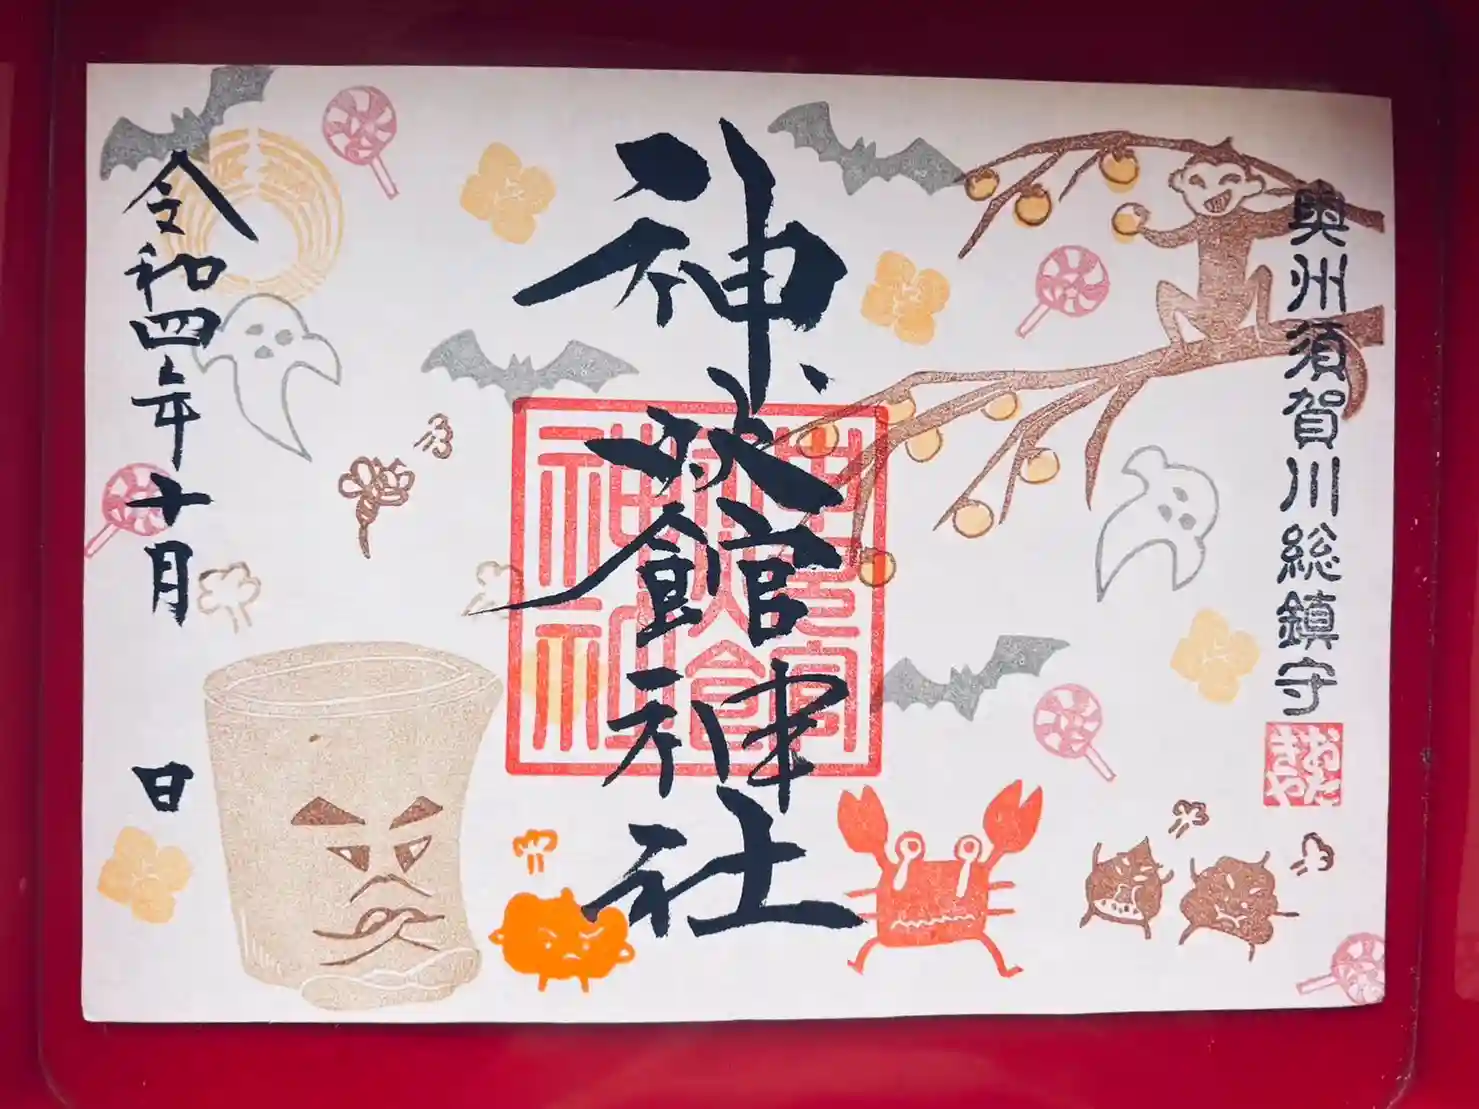 奥州須賀川総鎮守
おたきや
神炊館神社
神炊館神社
令和四年十月　日